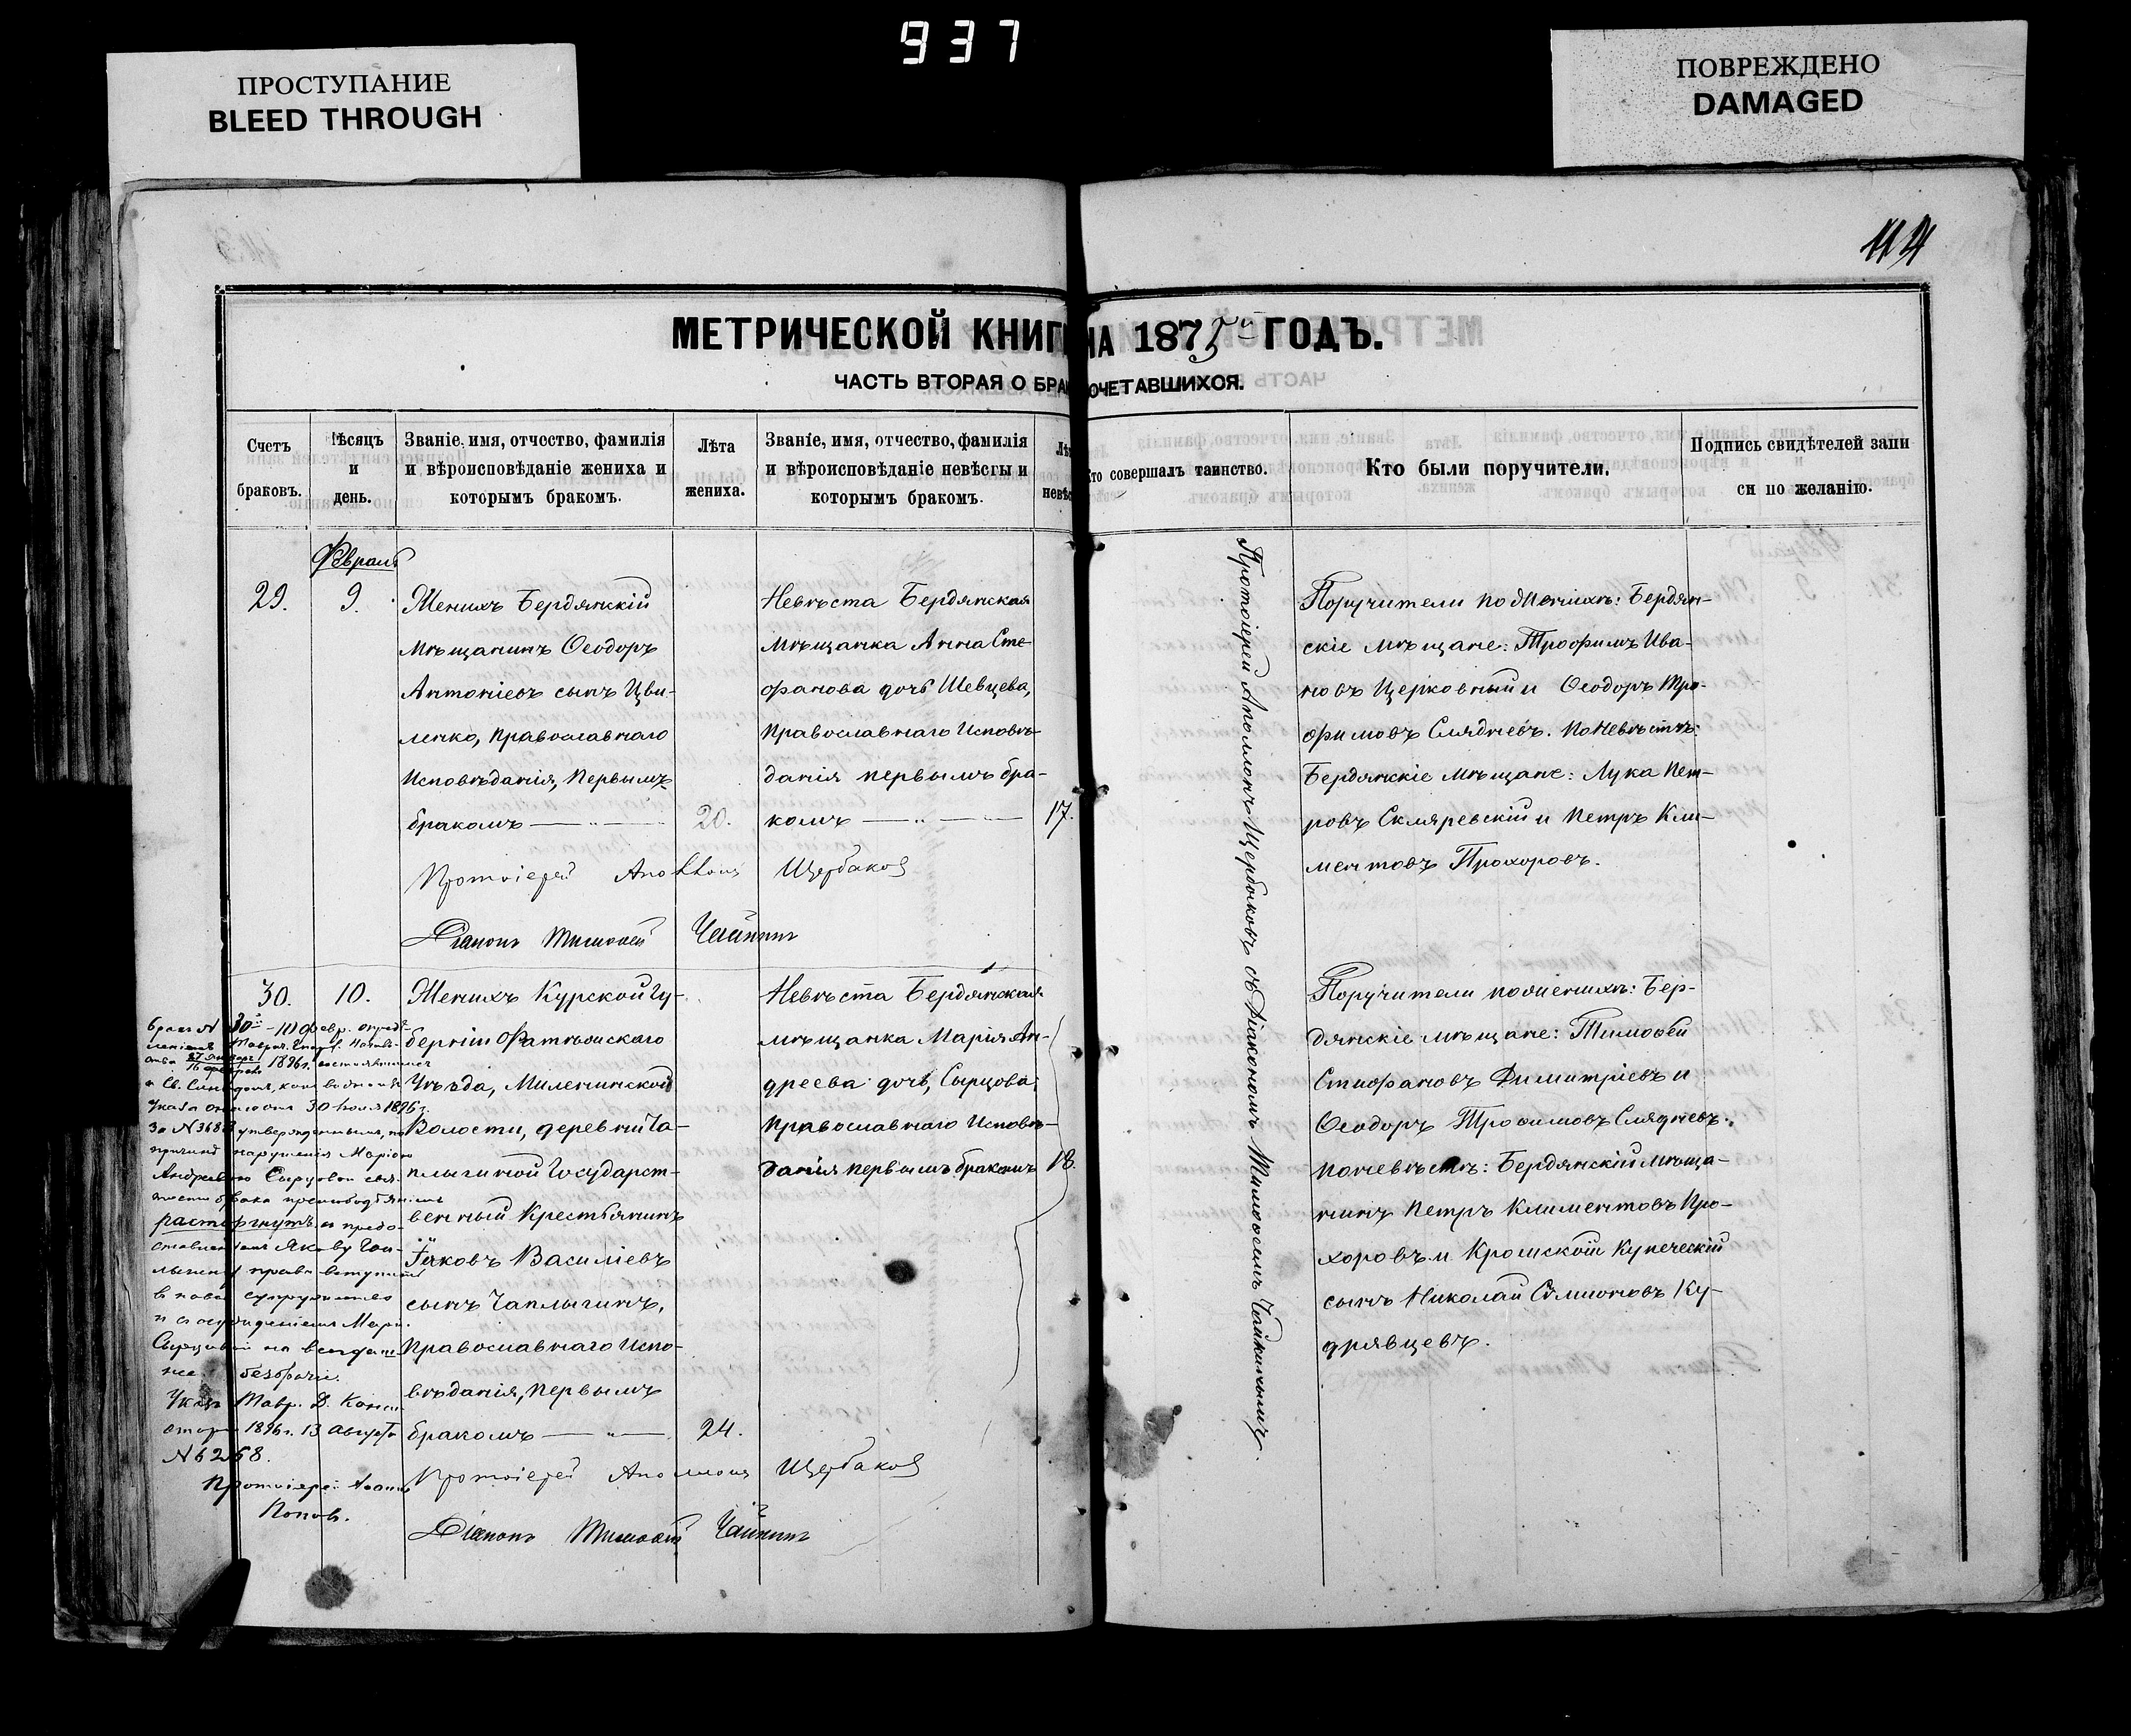 937
ПРОСТУПАНИЕ
BLEED THROUGH
ПОВРЕЖДЕНО
DAMAGED
114
МЕТРИЧЕСКОЙ КНИГ НА 1875 ГОДЪ.
ЧАСТЬ ВТОРАЯ О БРА ОЧЕТАВШИХСЯ.
Счетъ
браковъ.
Мѣсяцъ
и
день.
Званіе, имя, отчество, фамилія
и вѣроисповѣданіе жениха и
которымъ бракомъ.
Лѣта
жениха.
Званіе, имя, отчество, фамилія
и вѣроисповѣданіе невѣсты и
которымъ бракомъ.
Лѣ
невѣс
Кто совершалъ таинство.
Кто были поручители.
Подпись свидѣтелей запи
си по желанію.
Февраль
29.
9.
Женихъ Бердянскій
мѣщанинъ Ѳеодоръ
Антоніевъ сынъ Цви-
ленко, православнаго
исповѣданія, первымъ
бракомъ
20.
Невѣста Бердянская
мѣщанка Анна Сте-
фанова дочь Шевцева,
православнаго исповѣ-
данія первымъ бра-
комъ
17.
Протоіерей Аполлонъ Щербаковъ
Діаконъ Тимоѳей Чайкинъ
Протоіерей Аполлонъ Щербаковъ съ Діакономъ Тимоѳеемъ Чайкинымъ.
Поручители по женихѣ: Бердян-
скіе мѣщане: Трофимъ Ива-
новъ Церковный и Ѳеодоръ Тро-
фимовъ Слядневъ. По невѣстѣ:
Бердянскіе мѣщане: Лука Пет-
ровъ Скляревскій и Петръ Кли-
ментовъ Прохоровъ.
30.
10.
Женихъ Курской Гу-
берніи Фатѣжскаго
Уѣзда, Миленинской
Волости, деревни Ча-
плыгиной Государст-
венный Крестьянинъ
Іаковъ Василіевъ
сынъ Чаплыгинъ,
православнаго испо-
вѣданія, первымъ
бракомъ
24.
Невѣста Бердянская
мѣщанка Марія Ан-
дреева дочь, Сырцова,
православнаго исповѣ-
данія первымъ бракомъ
18.
Протоіерей Аполлонъ Щербаковъ
Діаконъ Тимоѳей Чайкинъ
Поручители по женихѣ: Бер-
дянскіе мѣщане: Тимоѳей
Стефановъ Димитріевъ и
Ѳеодоръ Трофимовъ Слядневъ;
по невѣстѣ: Бердянскій мѣща-
нинъ Петръ Климентовъ Про-
хоровъ и Кромскій купеческій
сынъ Николай Симионовъ Ку-
дрявцевъ.
Бракъ N 30 - 10 Февр. опредѣ-
1896 г.
и Св. Синодомъ,
указа онаго отъ 30 Іюля 1896 г.
за N 3683 утвержденнымъ, по
причинѣ нарушенія Маріею
Андреевою Сырцовою свя-
тости брака прелюбодѣяніемъ
расторгнутъ, съ предо-
ставленіемъ Якову Чап-
лыгину права вступить
въ новое супружество
и съ осужденіемъ Маріи
Сырцовой на всегдаш-
нее безбрачіе.
Указъ Тавр. Д. Конси-
сторіи 1896 г. 13 Августа
N 6268.
Протоіерей
Поповъ.